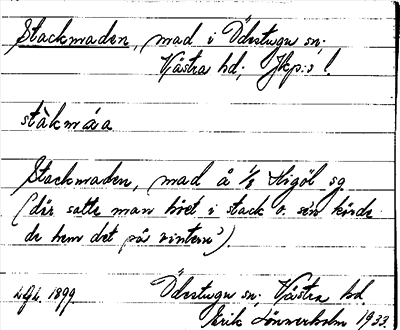 Stackmaden, mad i Ödestugu sn;
Västra hd; Jkp:s l.
stàkmáa
Stackmaden, mad å 1/8 Stigöl sg
(där satte man höet i stack o. sen körde
de hem det på vintern')
1899. Ödestugu sn; Västra hd
Erik Lönnerholm 1933.